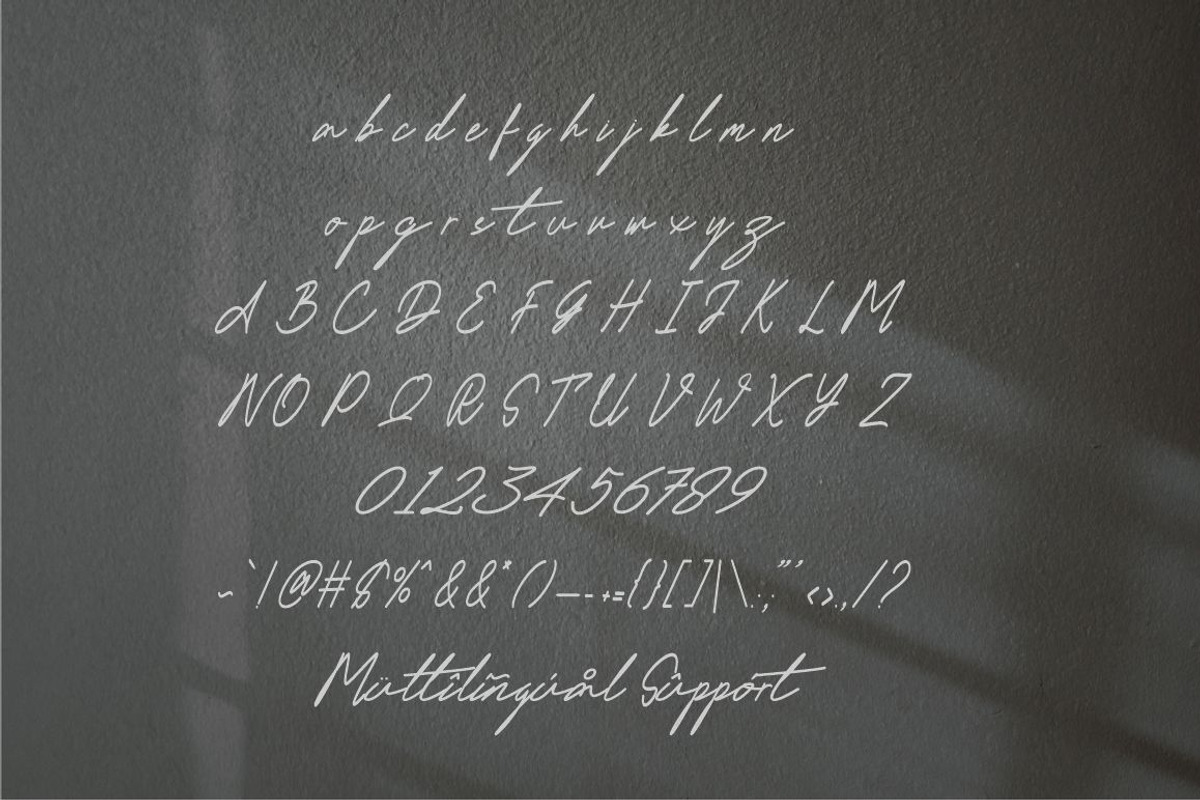 a b c d e f g h i j k l m n
o p q r s t u v w x y z
A B C D E F G H I J K L M
N O P Q R S T U V W X Y Z
0 1 2 3 4 5 6 7 8 9
~ ` ! @ # $ % ^ & & * ( ) — - + = { } [ ] | \ : ; " ' < > . , / ?
Müttilïñgúål Sûppórt